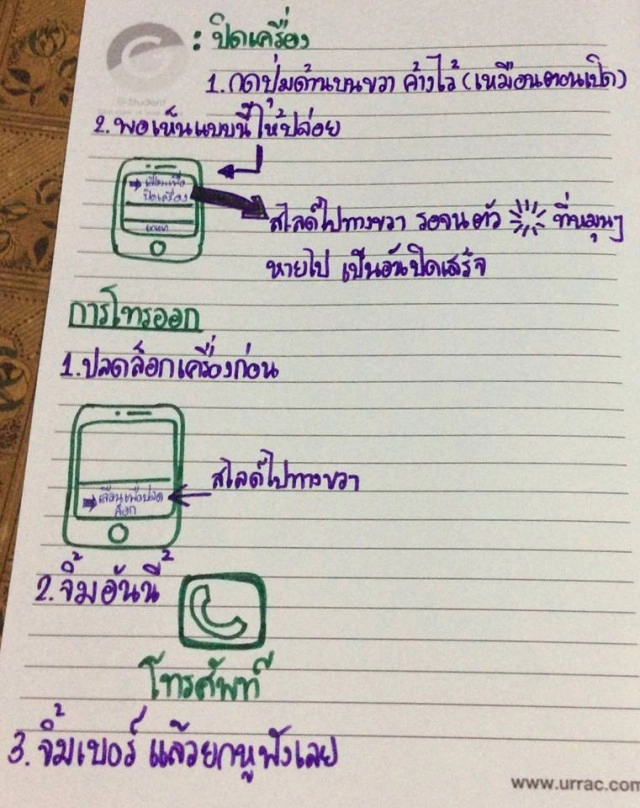 : ปิดเครื่อง
1. กดปุ่มด้านบนขวา ค้างไว้ (เหมือนตอนเปิด)
2. พอเห็นแบบนี้ ให้ปล่อย
เลื่อนเพื่อ
ปิดเครื่อง
ยกเลิก
สไลด์ไปทางขวา รอจนตัว ที่หมุนๆ
หายไป เป็นอันปิดเสร็จ
การโทรออก
1. ปลดล็อกเครื่องก่อน
สไลด์ไปทางขวา
เลื่อนเพื่อปลด
ล็อก
2. จิ้มอันนี้
โทรศัพท์
3. จิ้มเบอร์ แล้วยกหูฟังเลย
www.urrac.com